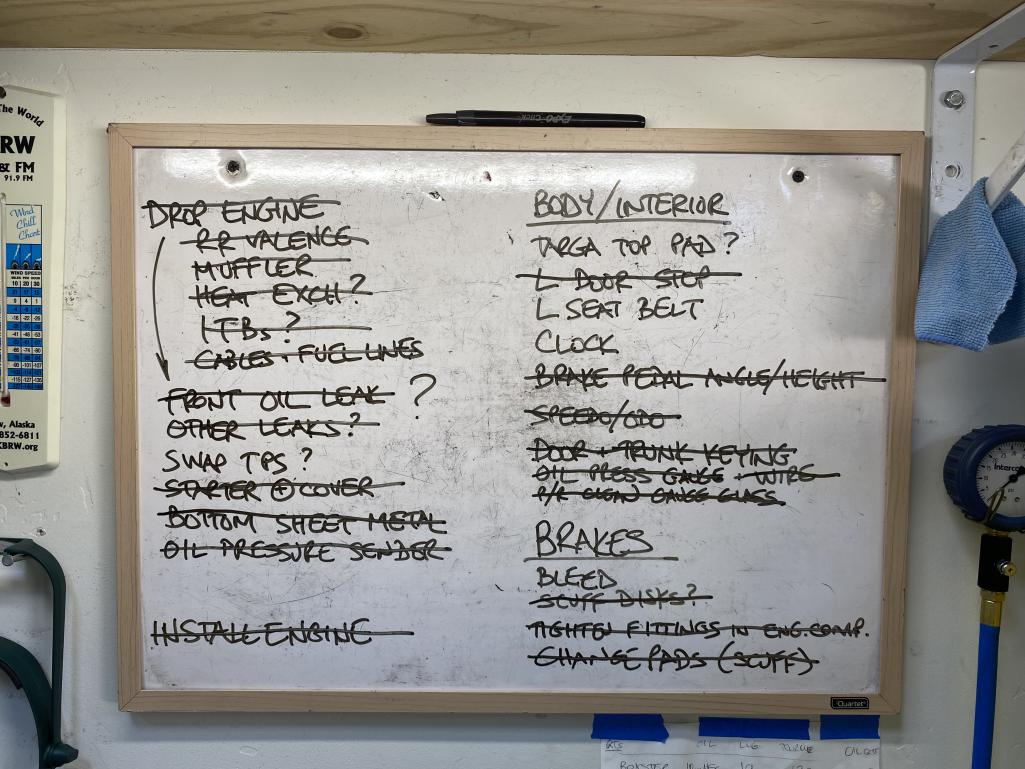 The World
BRW
& FM
91.9 FM
Wind
Chill
Chart
WIND SPEED
10 20 30
, Alaska
852-6811
KBRW.org
EXPO Click
DROP ENGINE
RR VALENCE
MUFFLER
HEAT EXCH?
ITBs?
CABLES + FUEL LINES
FRONT OIL LEAK ?
OTHER LEAKS?
SWAP TPS?
STARTER ⊕ COVER
BOTTOM SHEET METAL
OIL PRESSURE SENDER
INSTALL ENGINE
BODY/INTERIOR
TARGA TOP PAD?
L DOOR STOP
L SEAT BELT
CLOCK
BRAKE PEDAL ANGLE/HEIGHT
SPEEDO/ODO
DOOR + TRUNK KEYING
OIL PRESS GAUGE + WIRE
P/R CLEAN GAUGE GLASS
BRAKES
BLEED
SCUFF DISKS?
TIGHTEN FITTINGS IN ENG.COMP.
CHANGE PADS (SCUFF)
Quartet
OIL LUG